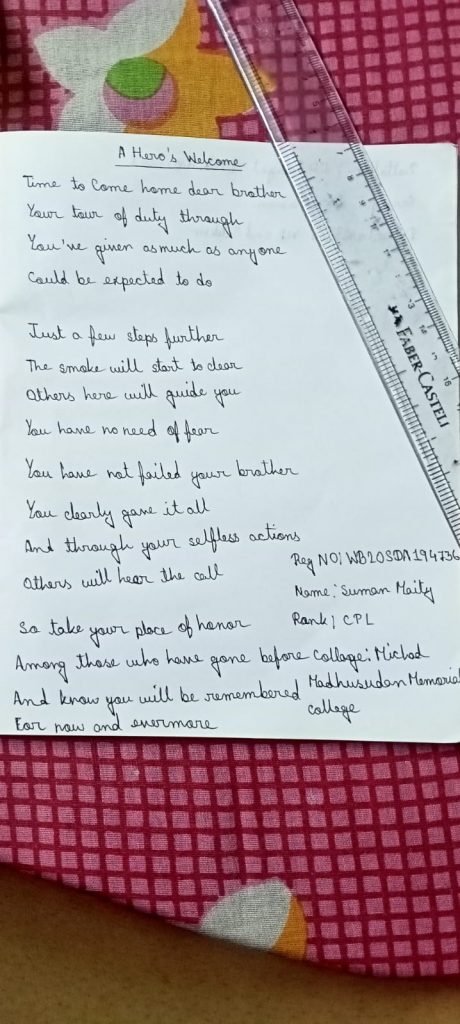 A Hero's Welcome
Time to Come home dear brother
Your tour of duty through
You've given asmuch as anyone
Could be expected to do
Just a few steps further
The smoke will start to clear
Others here will guide you
You have no need of fear
You have not failed your brother
You clearly gave it all
And through your selfless actions
Others will hear the call
So take your place of honor
Among those who have gone before
And know you will be remembered
For now and evermore
Reg NO: WB20SDA194736
Name: Suman Maity
Rank: CPL
Collage: Michal
Madhusudan Memorial
collage
FABER-CASTELL